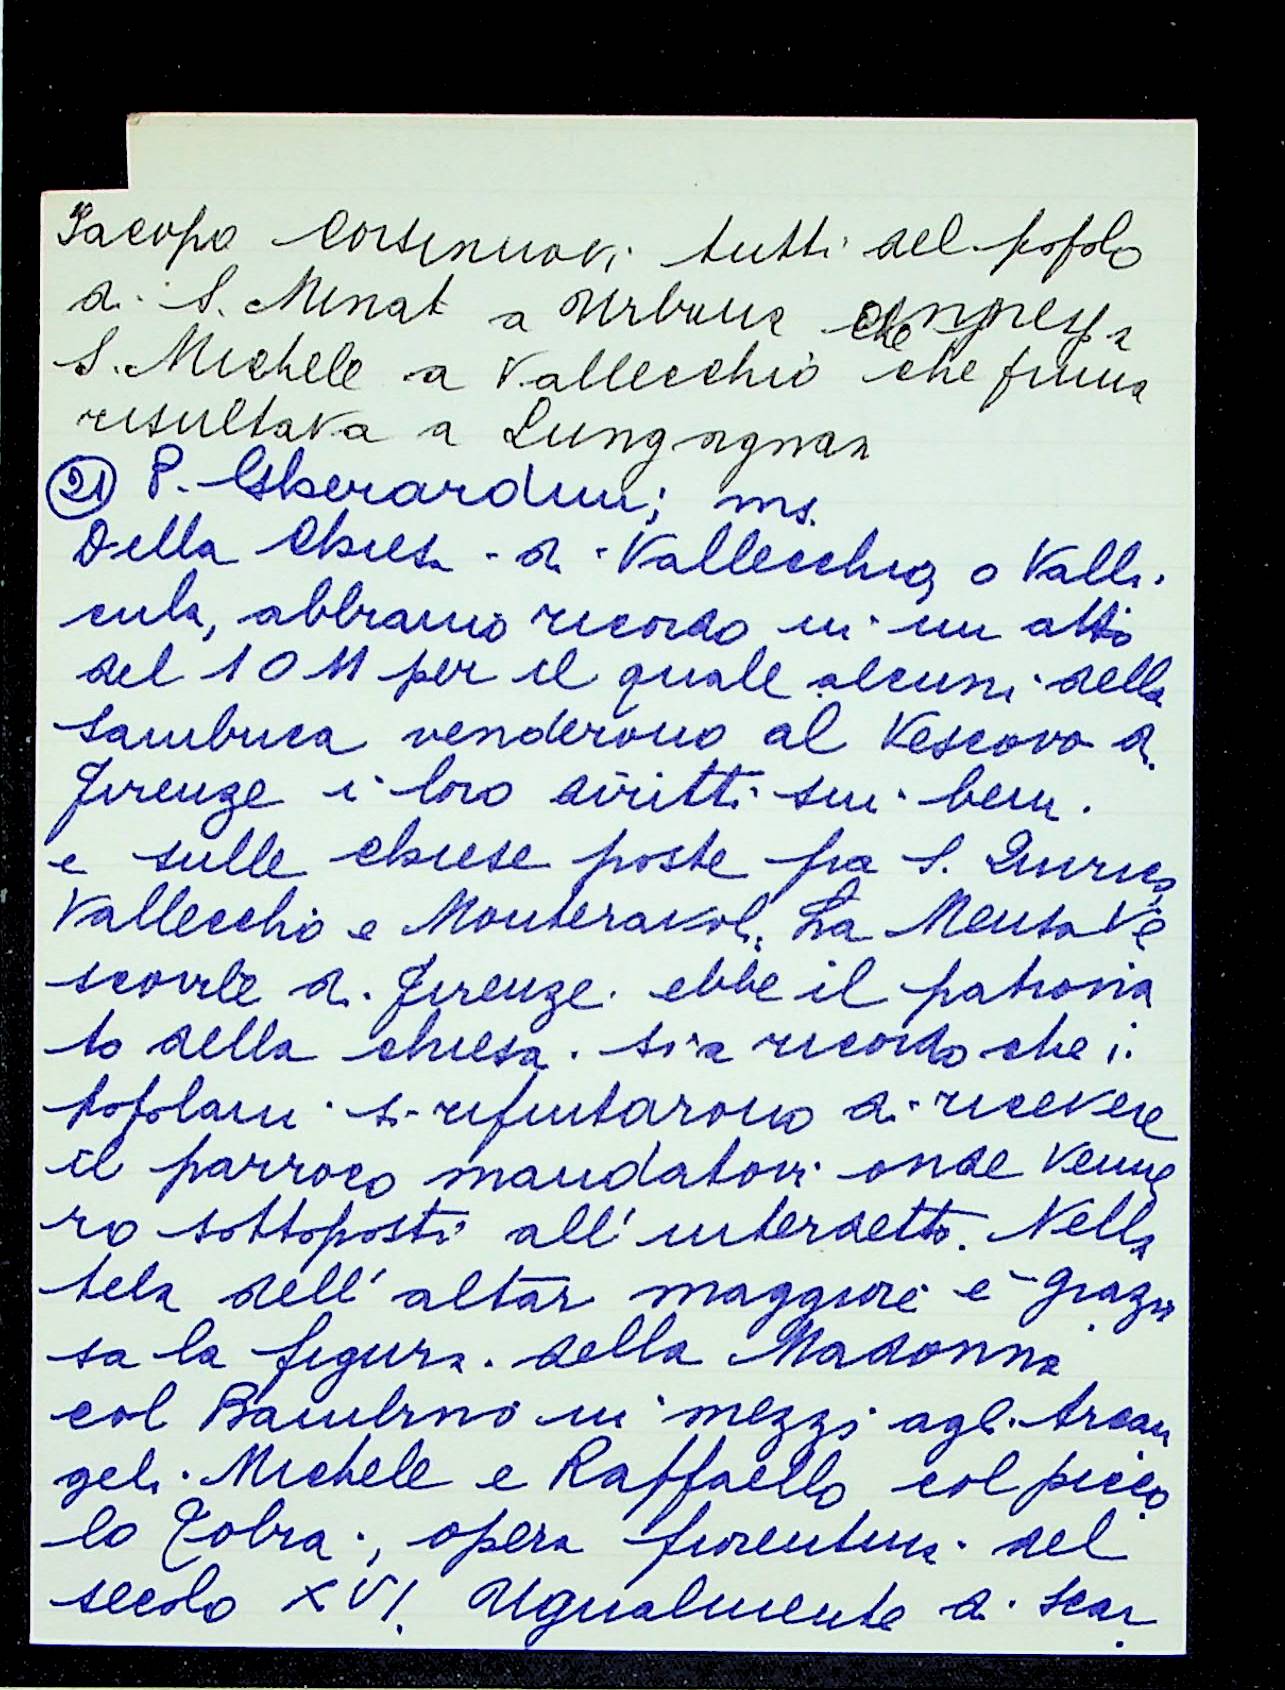 Iacopo Corsinuovi tutti del popolo
di S. Miniat a
S. Michele a Vallecchio che prima
risultava a Lungagnan
(21) P. Gherardini; ms.
Della Chiesa di Vallecchio, o Valli-
cula, abbiamo ricordo in un atto
del 1011 per il quale alcuni della
Sambuca venderono al Vescovo di
Firenze i loro diritti sui beni
e sulle chiese poste fra S. Quirico,
Vallecchio e Monteravoli. La Mensa Ve
scovile di Firenze ebbe il patrona
to della chiesa. si ricorda che i
popolani si rifiutarono di ricevere
il parroco mandatovi onde venne
ro sottoposti all'interdetto. Nella
tela dell'altar maggiore è grazio
sa la figura della Madonna
col Bambino in mezzo agli Arcan
geli Michele e Raffaello col picco
lo Tobia, opera fiorentina del
secolo XVI. Ugualmente di scar